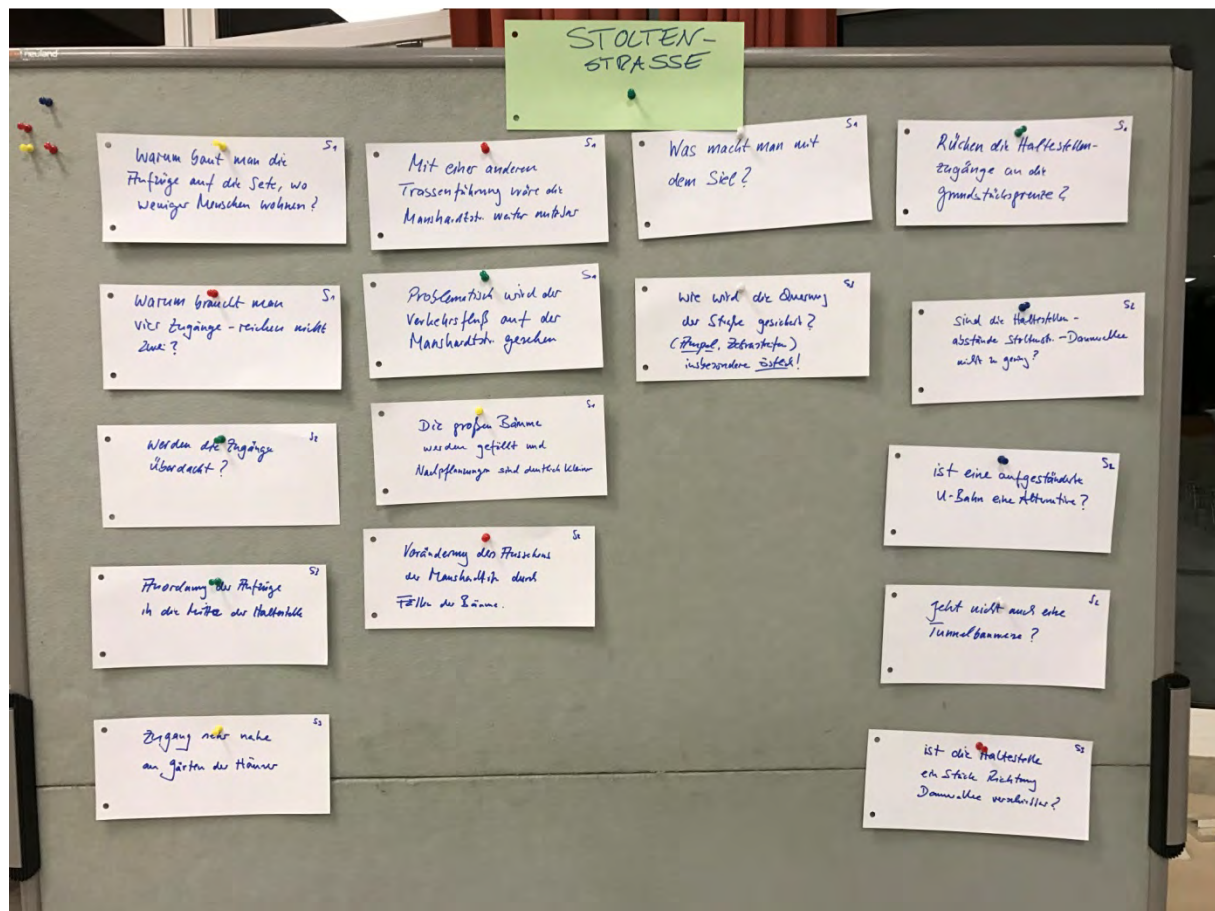 neuland
STOLTEN-
STRASSE
S1
Warum baut man die
Aufzüge auf die Seite, wo
weniger Menschen wohnen?
S1
Warum braucht man
vier Zugänge - reichen nicht
zwei?
S2
Werden die Zugänge
überdacht?
S3
Anordnung der Aufzüge
in die Mitte der Haltestelle
S3
Zugang sehr nahe
an Gärten der Häuser
S1
Mit einer anderen
Trassenführung wäre die
Manshardtstr. weiter nutzbar
S1
Problematisch wird der
Verkehrsfluß auf der
Manshardtstr. gesehen
S1
Die großen Bäume
werden gefällt und
Nachpflanzungen sind deutlich kleiner
S2
Veränderung des Aussehens
der Manshardtstr. durch
Fällen der Bäume.
S1
Was macht man mit
dem Siel?
S3
Wie wird die Querung
der Straße gesichert?
(Ampel, Zebrastreifen)
insbesondere östlich!
S1
Rücken die Haltestellen-
zugänge an die
Grundstücksgrenze?
S2
Sind die Haltestellen-
abstände Stoltenstr. - Dannerallee
nicht zu gering?
S2
ist eine aufgeständerte
U-Bahn eine Alternative?
S2
Geht nicht auch eine
Tunnelbauweise?
S3
ist die Haltestelle
ein Stück Richtung
Dannerallee verschiebbar?